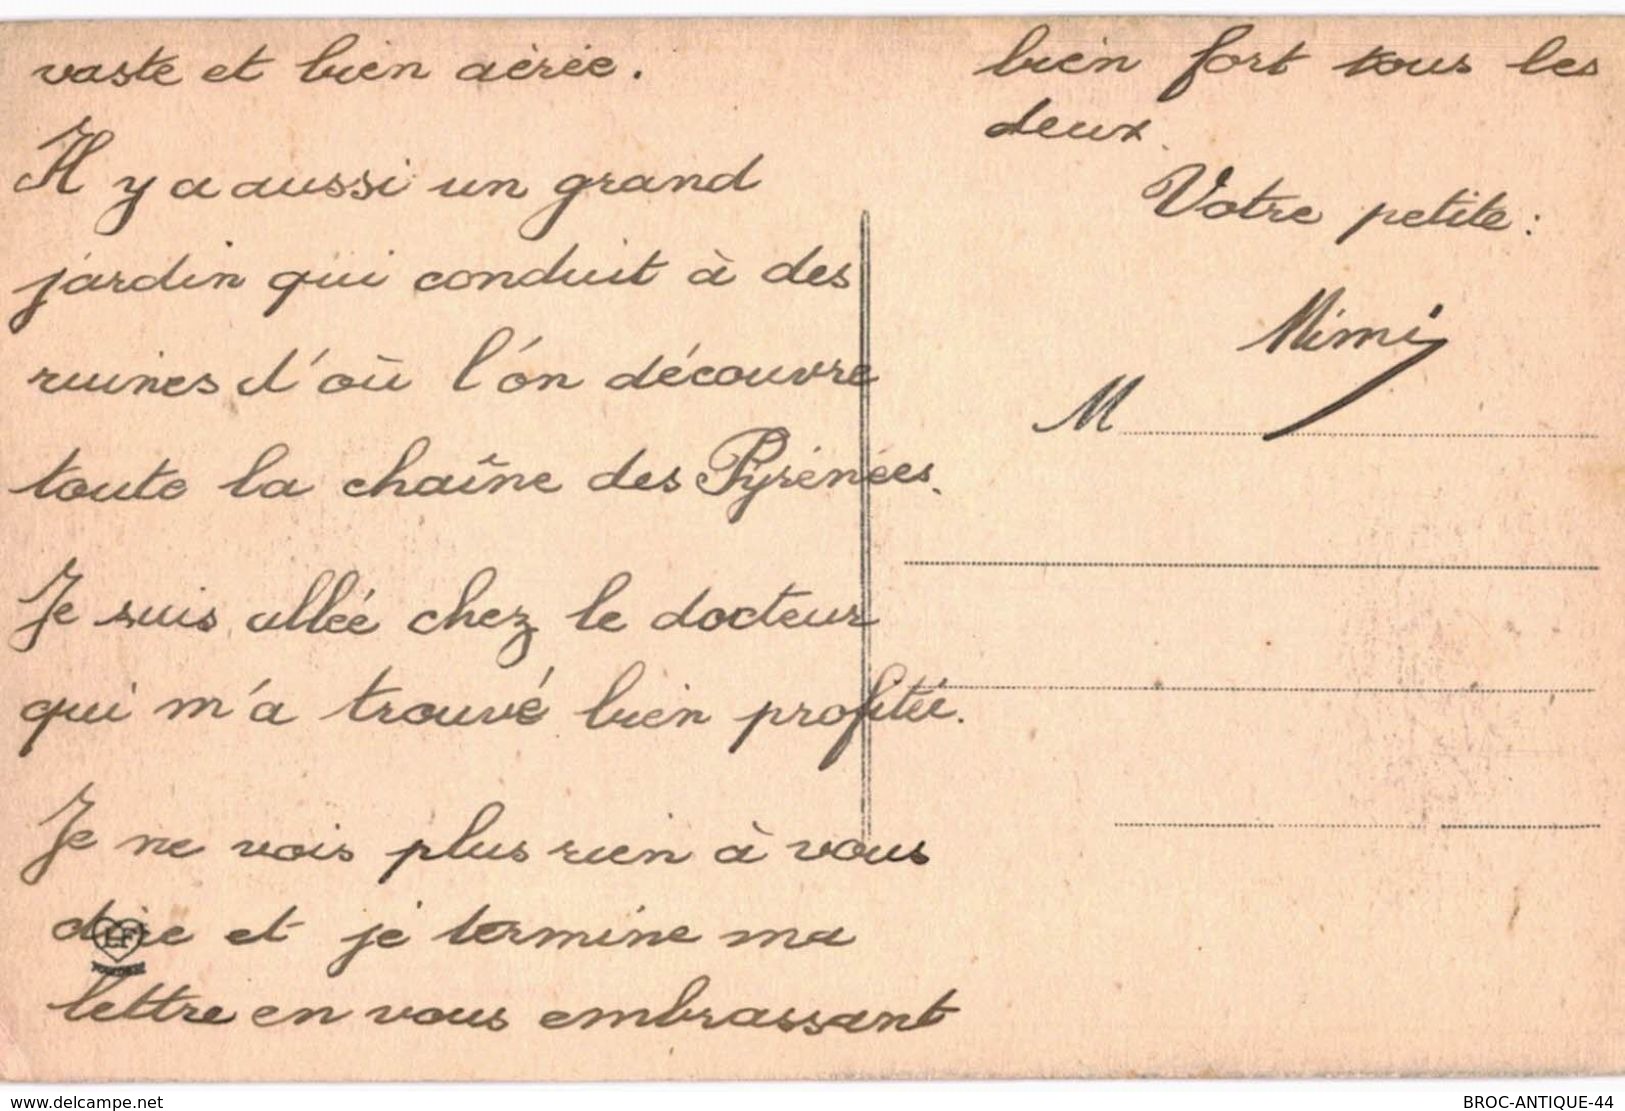 vaste et bien aérée.
Il y a aussi un grand
jardin qui conduit à des
ruines d'où l'on découvre
toute la chaîne des Pyrénées.
Je suis allée chez le docteur
qui m'a trouvé bien profitée.
Je ne vois plus rien à vous
dire et je termine ma
lettre en vous embrassant
bien fort tous les
deux.
Votre petite :
Mimi
M
LF
delcampe.net
BROC-ANTIQUE-44